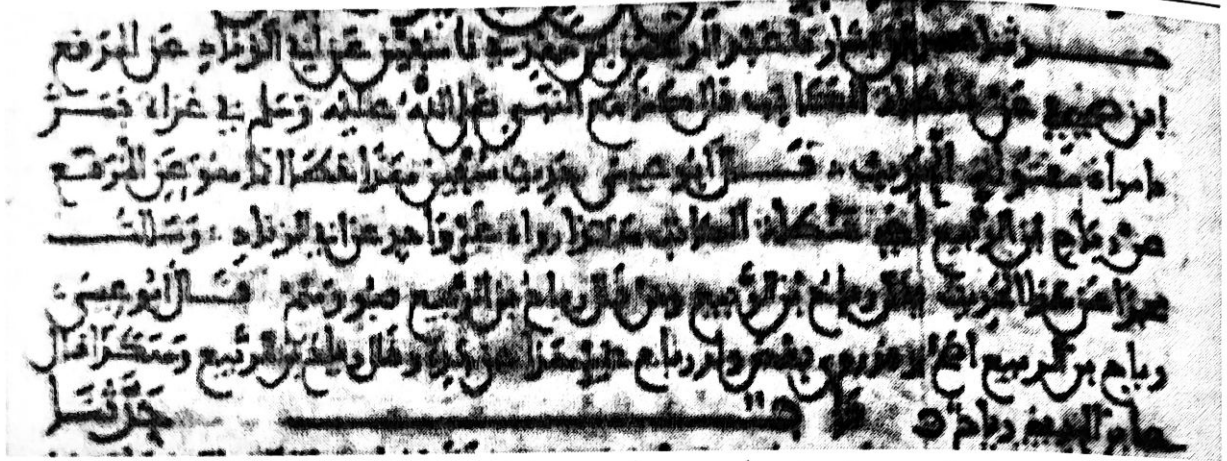 حدثنا محمد بن بشار نا عبد الرحمن بن مهدي نا سفين عن ابي الزناد عن المرقع
ابن صيفي عن حنظلة الكاتب قال كنا مع النبي صلى الله عليه وسلم في غزاة فمر
بامراة مقتولة الحديث قال أبو عيسى حديث سفين هذا خطأ انما هو عن المرقع
عن رباح ابن الربيع اخي حنظلة الكاتب هكذا رواه غير واحد عن ابي الزناد وسالت
محمدا عن هذا الحديث فقال رباح بن الربيع ومن قال رياح بن الربيع فهو وهم قال أبو عيسى
رباح بن الربيع اصح وقال رباح بن الربيع وهكذا قال
علي رباح حدثنا